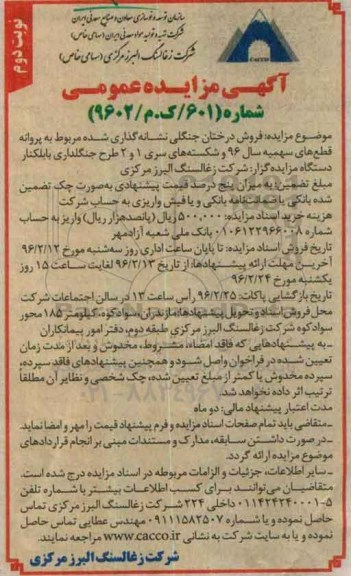 نوبت دوم
سازمان توسعه و نوسازی معادن و صنایع معدنی ایران
شرکت تهیه و تولید مواد معدنی ایران (سهامی خاص)
شرکت زغالسنگ البرز مرکزی (سهامی خاص)
CACCO
آگهی مزایده عمومی
شماره (۶۰۱/ک.م/۹۶۰۲)
موضوع مزایده: فروش درختان جنگلی نشانه‌گذاری شده مربوط به پروانه
قطع‌های سهمیه سال ۹۶ و شکسته‌های سری ۱ و ۲ طرح جنگلداری بابلکنار
دستگاه مزایده‌گزار: شرکت زغالسنگ البرز مرکزی
مبلغ تضمین: به میزان پنج درصد قیمت پیشنهادی به‌صورت چک تضمین
شده بانکی یا ضمانت‌نامه بانکی و یا فیش واریزی به حساب شرکت
هزینه خرید اسناد مزایده: ۵۰۰,۰۰۰ ریال (پانصدهزار ریال) واریز به حساب
شماره ۰۱۰۶۱۲۲۹۶۶۰۰۸ بانک ملی شعبه آزادمهر
تاریخ فروش اسناد مزایده: تا پایان ساعت اداری روز سه‌شنبه مورخ ۹۶/۲/۱۲
آخرین مهلت ارائه پیشنهادها: از تاریخ ۹۶/۲/۱۳ لغایت ساعت ۱۵ روز
یکشنبه مورخ ۹۶/۲/۲۴
تاریخ بازگشایی پاکات: ۹۶/۲/۲۵ رأس ساعت ۱۳ در سالن اجتماعات شرکت
محل فروش اسناد و تحویل پیشنهادها: مازندران، سوادکوه، کیلومتر ۱۸۵ محور
سوادکوه شرکت زغالسنگ البرز مرکزی طبقه دوم، دفتر امور پیمانکاران
ـ به پیشنهادهایی که فاقد امضاء، مشروط، مخدوش و بعد از مدت زمان
تعیین شده در فراخوان واصل شود و همچنین پیشنهادهای فاقد سپرده،
سپرده مخدوش یا کمتر از مبلغ تعیین شده، چک شخصی و نظایر آن مطلقا
ترتیب اثر داده نخواهد شد.
مدت اعتبار پیشنهاد مالی: دو ماه
ـ متقاضی باید تمام صفحات اسناد مزایده و فرم پیشنهاد قیمت را مهر و امضا نماید.
ـ در صورت داشتن سابقه، مدارک و مستندات مبنی بر انجام قراردادهای
موضوع مزایده ارائه گردد.
ـ سایر اطلاعات، جزئیات و الزامات مربوطه در اسناد مزایده درج شده است.
متقاضیان می‌توانند برای کسب اطلاعات بیشتر با شماره تلفن
۰۱۱۴۲۴۲۴۰۰۰۱-۵ داخلی ۲۲۴ شرکت زغالسنگ البرز مرکزی تماس
حاصل نموده و یا شماره ۰۹۱۱۱۵۸۲۵۰۷ مهندس عطایی تماس حاصل
نموده و یا به سایت شرکت به نشانی www.cacco.ir مراجعه نمایند.
شرکت زغالسنگ البرز مرکزی